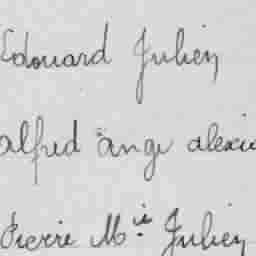 Edouard Julien
alfred ange alexis
Pierre Mie Julien